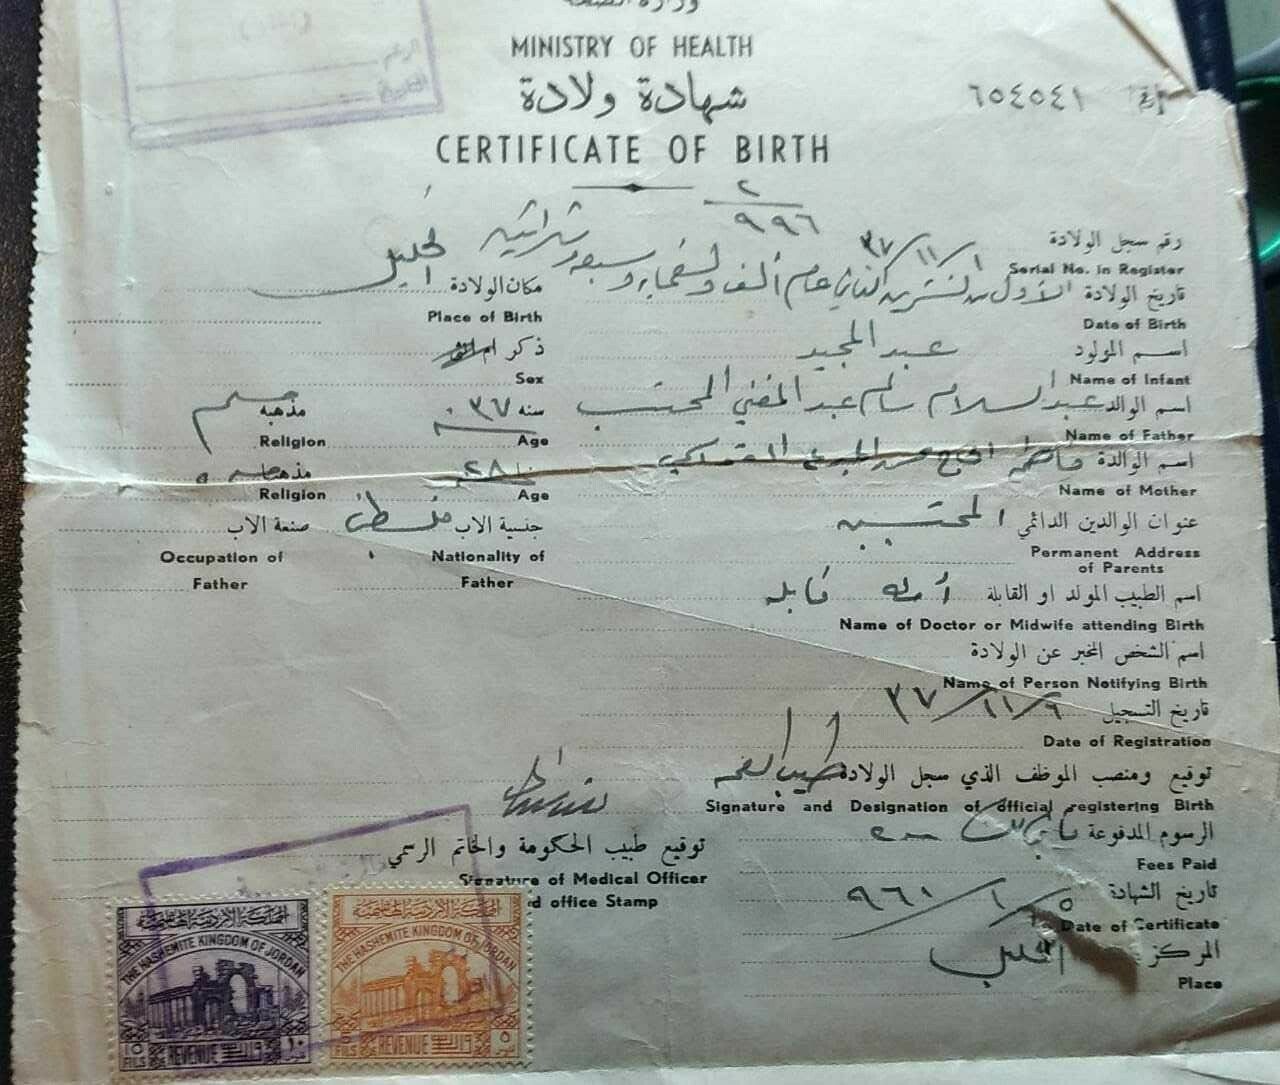 وزارة الصحة
MINISTRY OF HEALTH
شهادة ولادة
CERTIFICATE OF BIRTH
٦٥٤٥٤١
الرقم
التاريخ
رقم سجل الولادة ٢/٩٩٦
Serial No. in Register
٣٧/١١/١
تاريخ الولادة الأول من تشرين الثاني عام ألف وتسعماية وسبعة وثلاثين
Date of Birth
مكان الولادة الخليل
Place of Birth
اسم المولود عبد المجيد
Name of Infant
ذكر ام انثى
Sex
اسم الوالد عبد السلام سالم عبد المغني المحتسب
Name of Father
سنه ٣٧
Age
مذهبه مسلم
Religion
اسم الوالدة فاطمه الحاج
Name of Mother
٢٨
Age
مذهبها
Religion
عنوان الوالدين الدائمي المحتسبين
Permanent Address of Parents
جنسية الاب فلسطيني
Nationality of Father
صنعة الاب
Occupation of Father
اسم الطبيب المولد او القابلة قابله
Name of Doctor or Midwife attending Birth
اسم الشخص المخبر عن الولادة
Name of Person Notifying Birth
تاريخ التسجيل ٣٧/١١/٦
Date of Registration
توقيع ومنصب الموظف الذي سجل الولادة طبيب الصحه
Signature and Designation of official registering Birth
توقيع طبيب الحكومة والخاتم الرسمي
Signature of Medical Officer
and office Stamp
الرسوم المدفوعة
Fees Paid
تاريخ الشهادة ٩٦١/١/٥
Date of Certificate
المركز الخليل
Place
المملكة الاردنية الهاشمية
THE HASHEMITE KINGDOM OF JORDAN
FILS
REVENUE
المملكة الاردنية الهاشمية
THE HASHEMITE KINGDOM OF JORDAN
FILS
REVENUE